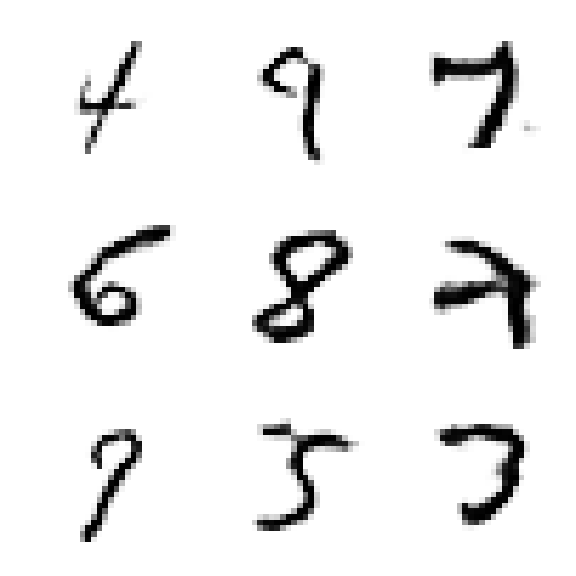 4 9 7
6 8 7
9 5 3